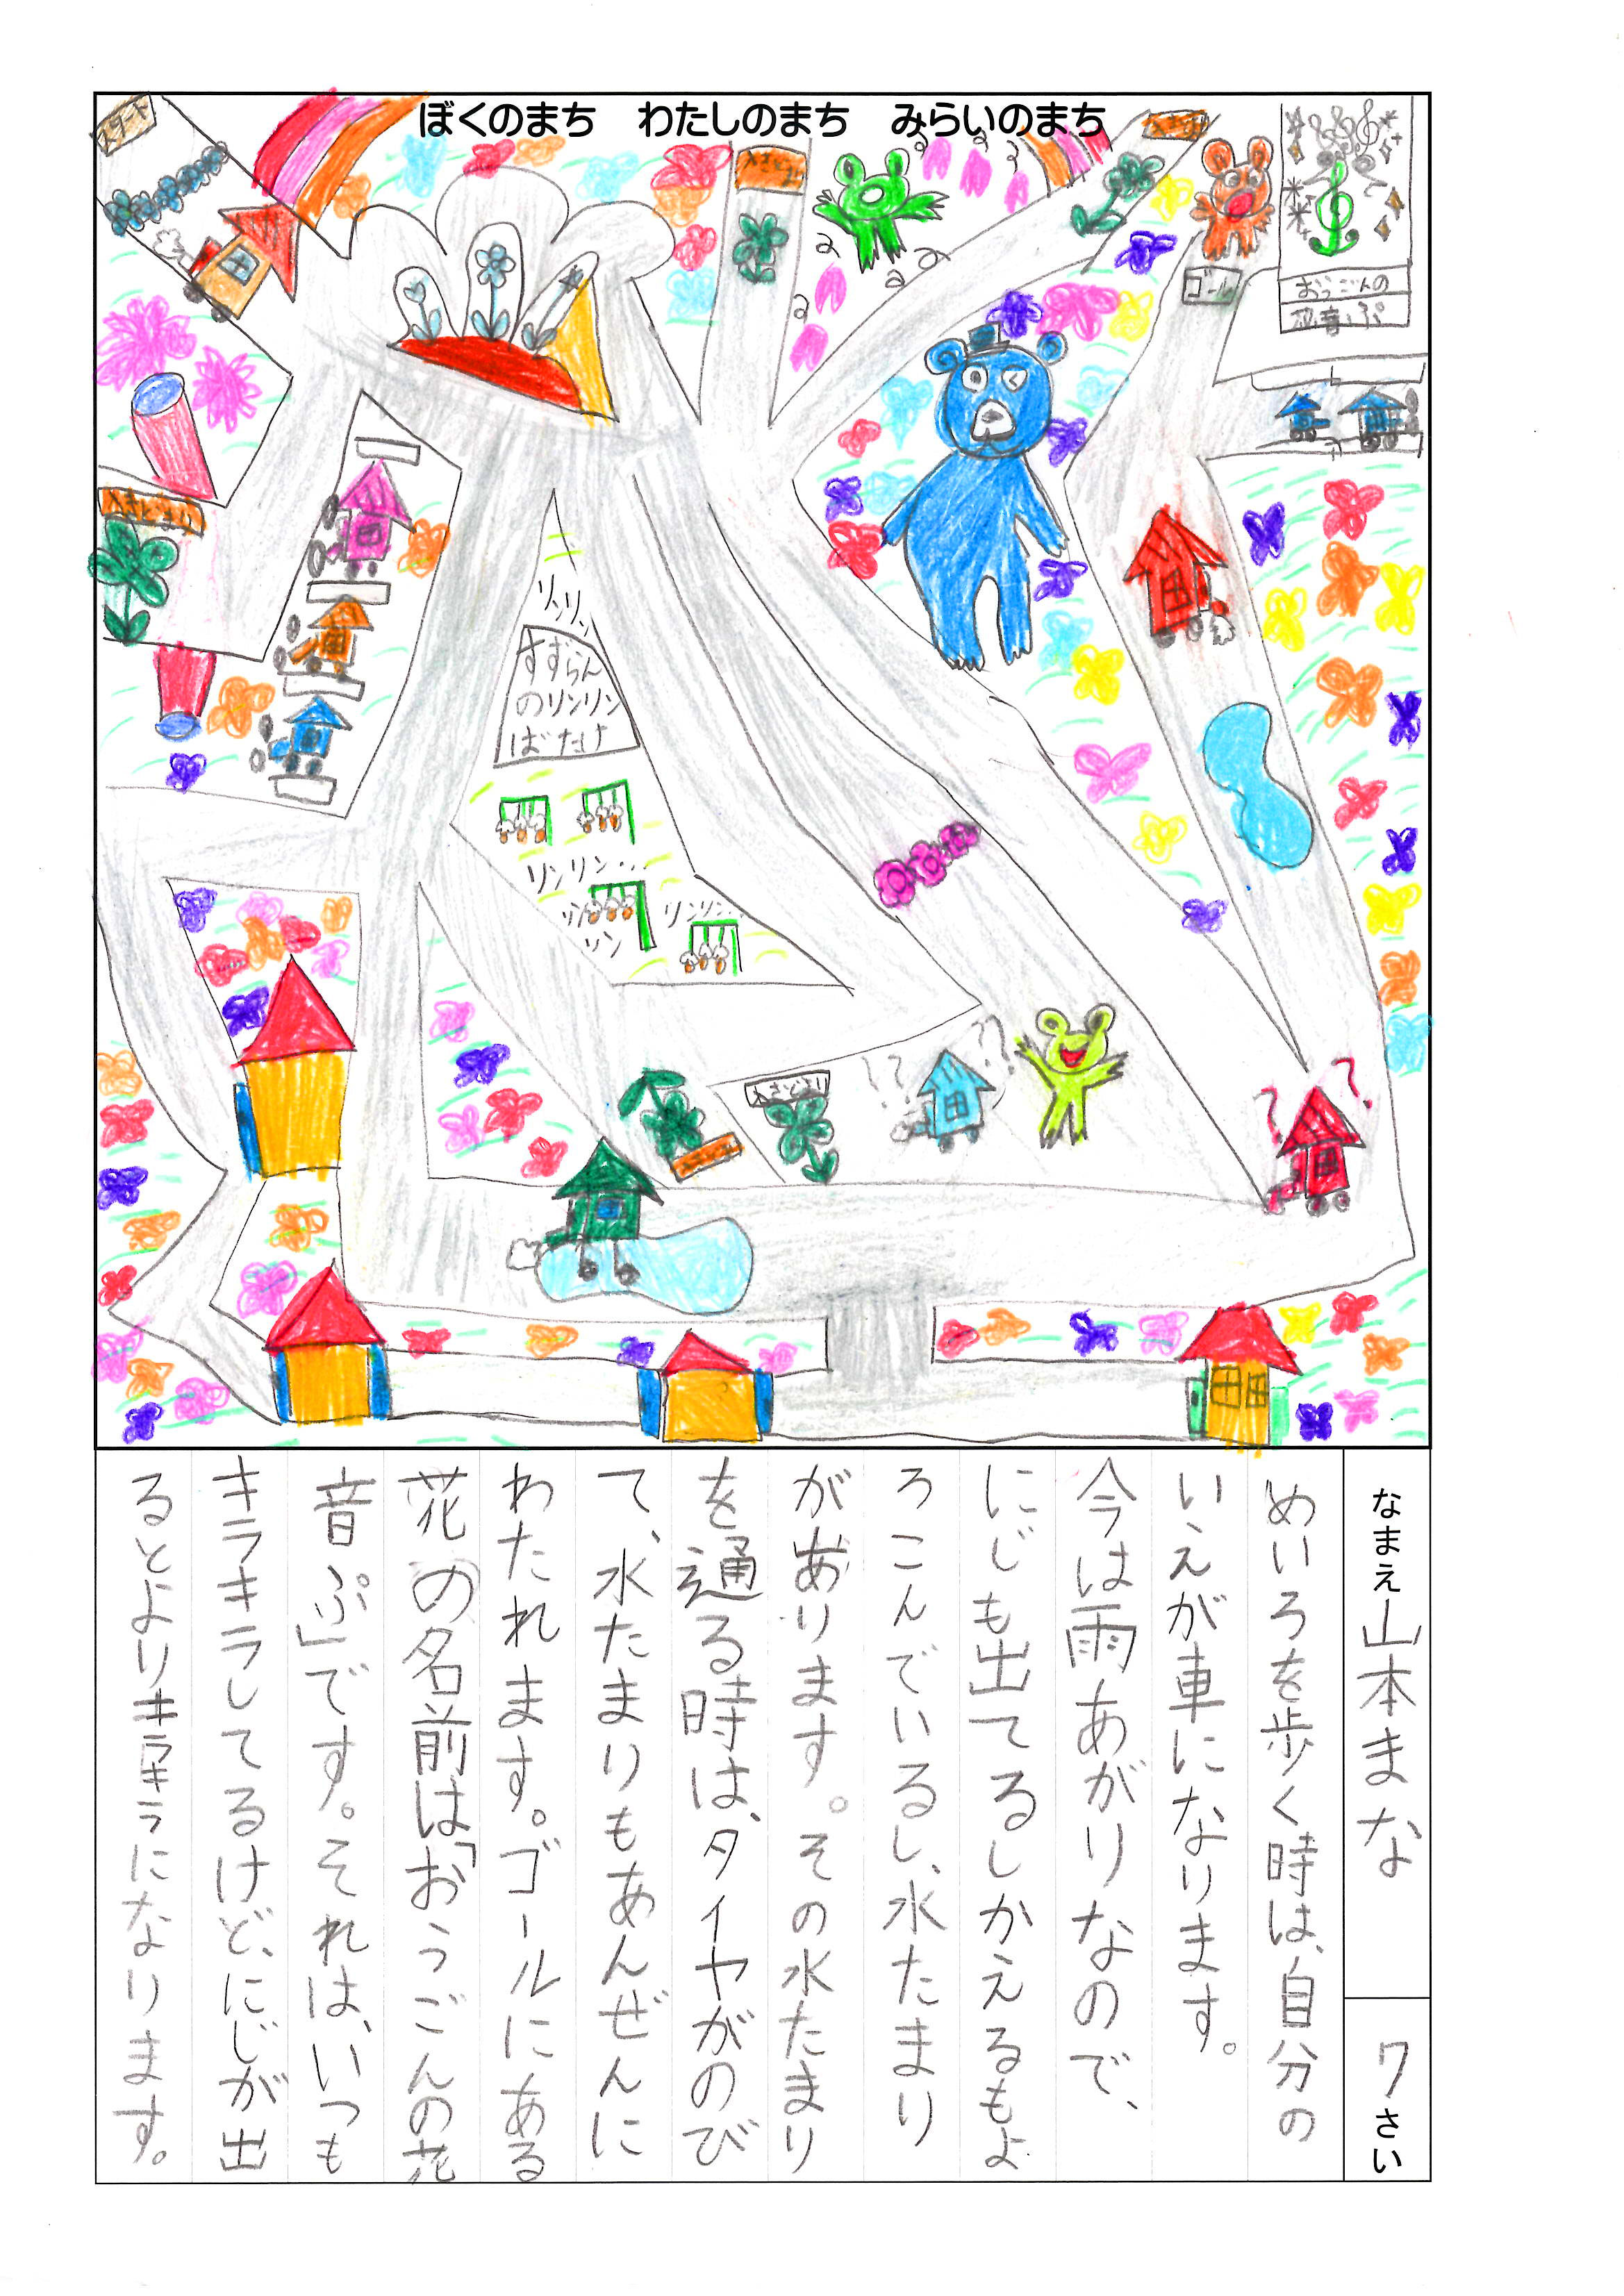 ぼくのまち　わたしのまち　みらいのまち
スタート
ゴール
おうごんの
花音ぷ
リンリン
すずらん
のリンリン
ばたけ
リンリン・・
リン
リン
リンリン・・
??
??
?
?
なまえ 山本まな
7さい
めいろを歩く時は、自分の
いえが車になります。
今は雨あがりなので、
にじも出てるしかえるもよ
ろこんでいるし、水たまり
があります。その水たまり
を通る時は、タイヤがのび
て、水たまりもあんぜんに
わたれます。ゴールにある
花の名前は「おうごんの花
音ぷ」です。それは、いつも
キラキラしてるけど、にじが出
るとよりキラキラになります。